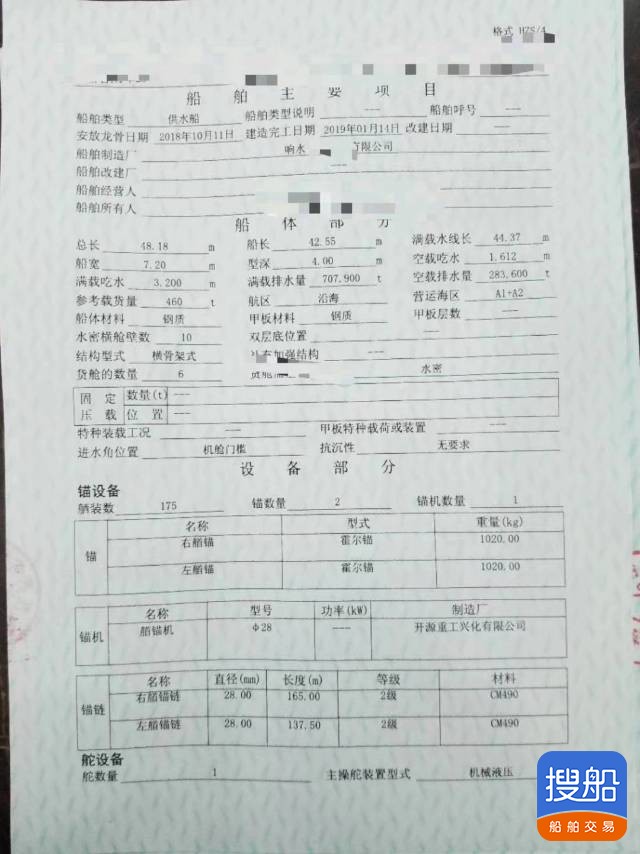 格式 HZS/4
船 舶 主 要 项 目
船舶类型 供水船 船舶类型说明 --- 船舶呼号 ---
安放龙骨日期 2018年10月11日 建造完工日期 2019年01月14日 改建日期 ---
船舶制造厂 响水 有限公司
船舶改建厂 ---
船舶经营人
船舶所有人
船 体 部 分
总长 48.18 m 船长 42.55 m 满载水线长 44.37 m
船宽 7.20 m 型深 4.00 m 空载吃水 1.612 m
满载吃水 3.200 m 满载排水量 707.900 t 空载排水量 283.600 t
参考载货量 460 t 航区 沿海 营运海区 A1+A2
船体材料 钢质 甲板材料 钢质 甲板层数 ---
水密横舱壁数 10 双层底位置 ---
结构型式 横骨架式 加强结构 ---
货舱的数量 6 货舱 水密
固定压载 数量(t) ---
位置 ---
特种装载工况 --- 甲板特种载荷或装置 ---
进水角位置 机舱门槛 抗沉性 无要求
设 备 部 分
锚设备
舾装数 175 锚数量 2 锚机数量 1
锚 名称 型式 重量(kg)
右艏锚 霍尔锚 1020.00
左艏锚 霍尔锚 1020.00
锚机 名称 型号 功率(kW) 制造厂
艏锚机 Φ28 --- 开源重工兴化有限公司
锚链 名称 直径(mm) 长度(m) 等级 材料
右艏锚链 28.00 165.00 2级 CM490
左艏锚链 28.00 137.50 2级 CM490
舵设备
舵数量 1 主操舵装置型式 机械液压
搜船
船舶交易